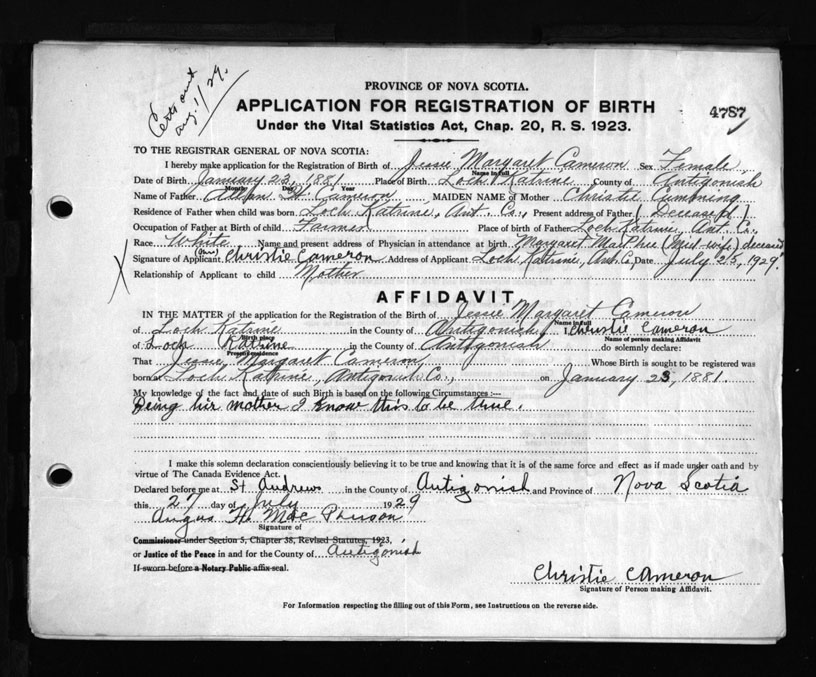 Certs out
Aug. 1/29.
PROVINCE OF NOVA SCOTIA.
APPLICATION FOR REGISTRATION OF BIRTH
4787
Under the Vital Statistics Act, Chap. 20, R. S. 1923.
TO THE REGISTRAR GENERAL OF NOVA SCOTIA:
I hereby make application for the Registration of Birth of Jessie Margaret Cameron Sex Female
Name in full
Date of Birth January 23, 1881 Place of Birth Loch Katrine County of Antigonish
Month Day Year
Name of Father Allan H. Cameron MAIDEN NAME of Mother Christie
Residence of Father when child was born Loch Katrine, Ant. Co., Present address of Father (Deceased)
Occupation of Father at Birth of child Farmer Place of birth of Father Loch Katrine, Ant. Co.
Race White Name and present address of Physician in attendance at birth Margaret MacPhee (Mid-wife) deceased
Signature of Applicant (Mrs) Christie Cameron Address of Applicant Loch Katrine, Ant. Co, Date July 25, 1929.
Relationship of Applicant to child Mother
AFFIDAVIT
IN THE MATTER of the application for the Registration of Birth of Jessie Margaret Cameron
Name in full
of Loch Katrine in the County of Antigonish I, Christie Cameron
Birth place Name of person making Affidavit
of Loch Katrine in the County of Antigonish do solemnly declare:
Present residence
That Jessie Margaret Cameron, Whose Birth is sought to be registered was
born at Loch Katrine, Antigonish Co., on January 23, 1881.
My knowledge of the fact and date of such Birth is based on the following Circumstances :—
Being hir mother I know this to be true.
I make this solemn declaration conscientiously believing it to be true and knowing that it is of the same force and effect as if made under oath and by
virtue of The Canada Evidence Act.
Declared before me at St Andrews in the County of Antigonish and Province of Nova Scotia
this 27 day of July 1929
Angus H. MacPherson
Signature of
Commissioner under Section 5, Chapter 38, Revised Statutes, 1923,
or Justice of the Peace in and for the County of Antigonish
If sworn before a Notary Public affix seal.
Christie Cameron
Signature of Person making Affidavit.
For Information respecting the filling out of this Form, see Instructions on the reverse side.